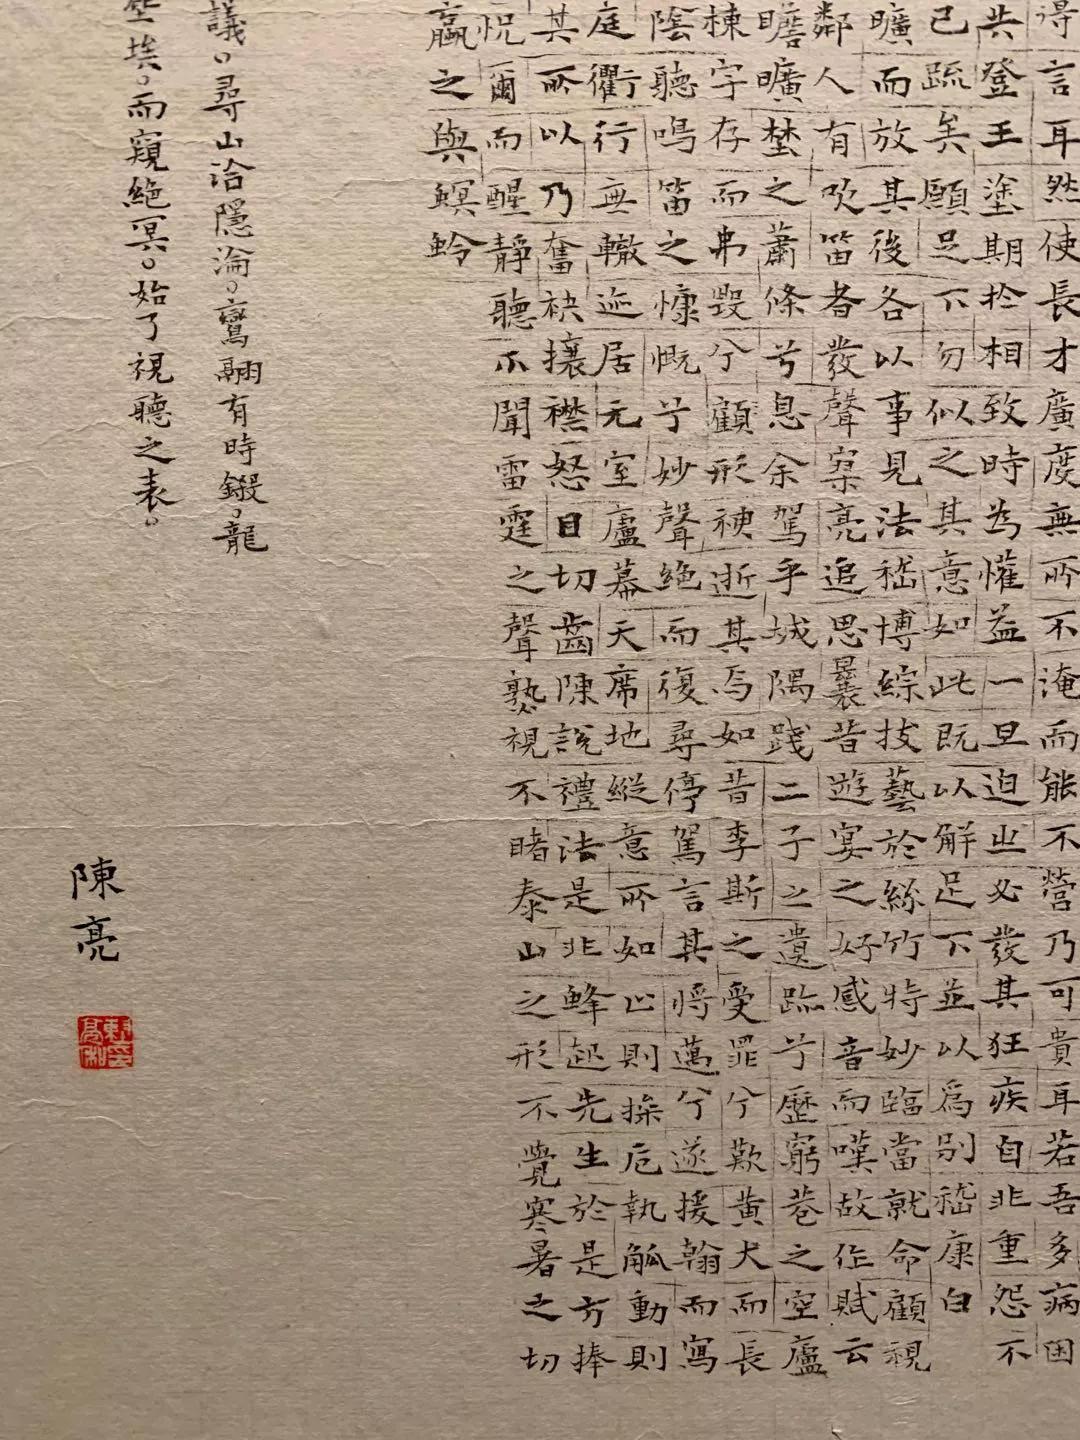 得言耳然使長才廣度無所不淹而能不營乃可貴耳若吾多病困
共登王塗期於相致時為懽益一旦迫之必發其狂疾自非重怨不
已疏矣願足下勿似之其意如此既以解足下並以爲別嵇康白
曠而放其後各以事見法嵇博綜技藝於絲竹特妙臨當就命顧視
鄰人有吹笛者發聲寥亮追思曩昔遊宴之好感音而嘆故作賦云
瞻曠埜之蕭條兮息余駕乎城隅踐二子之遺跡兮歷窮巷之空廬
棟宇存而弗毀兮顧形神逝其焉如昔李斯之受罪兮歎黃犬而長
陰聽鳴笛之慷慨兮妙聲絶而復尋停駕言其將邁兮遂援翰而寫
庭衢行無轍迹居无室廬幕天席地縱意所如止則操卮執觚動則
其所以乃奮袂攘襟怒目切齒陳說禮法是非蜂起先生於是方捧
怳爾而醒靜聽不聞雷霆之聲熟視不睹泰山之形不覺寒暑之切
蠃之與螟蛉
議尋山洽隱淪鸞翮有時鎩龍
埃而窺絶冥始了視聽之表
陳亮